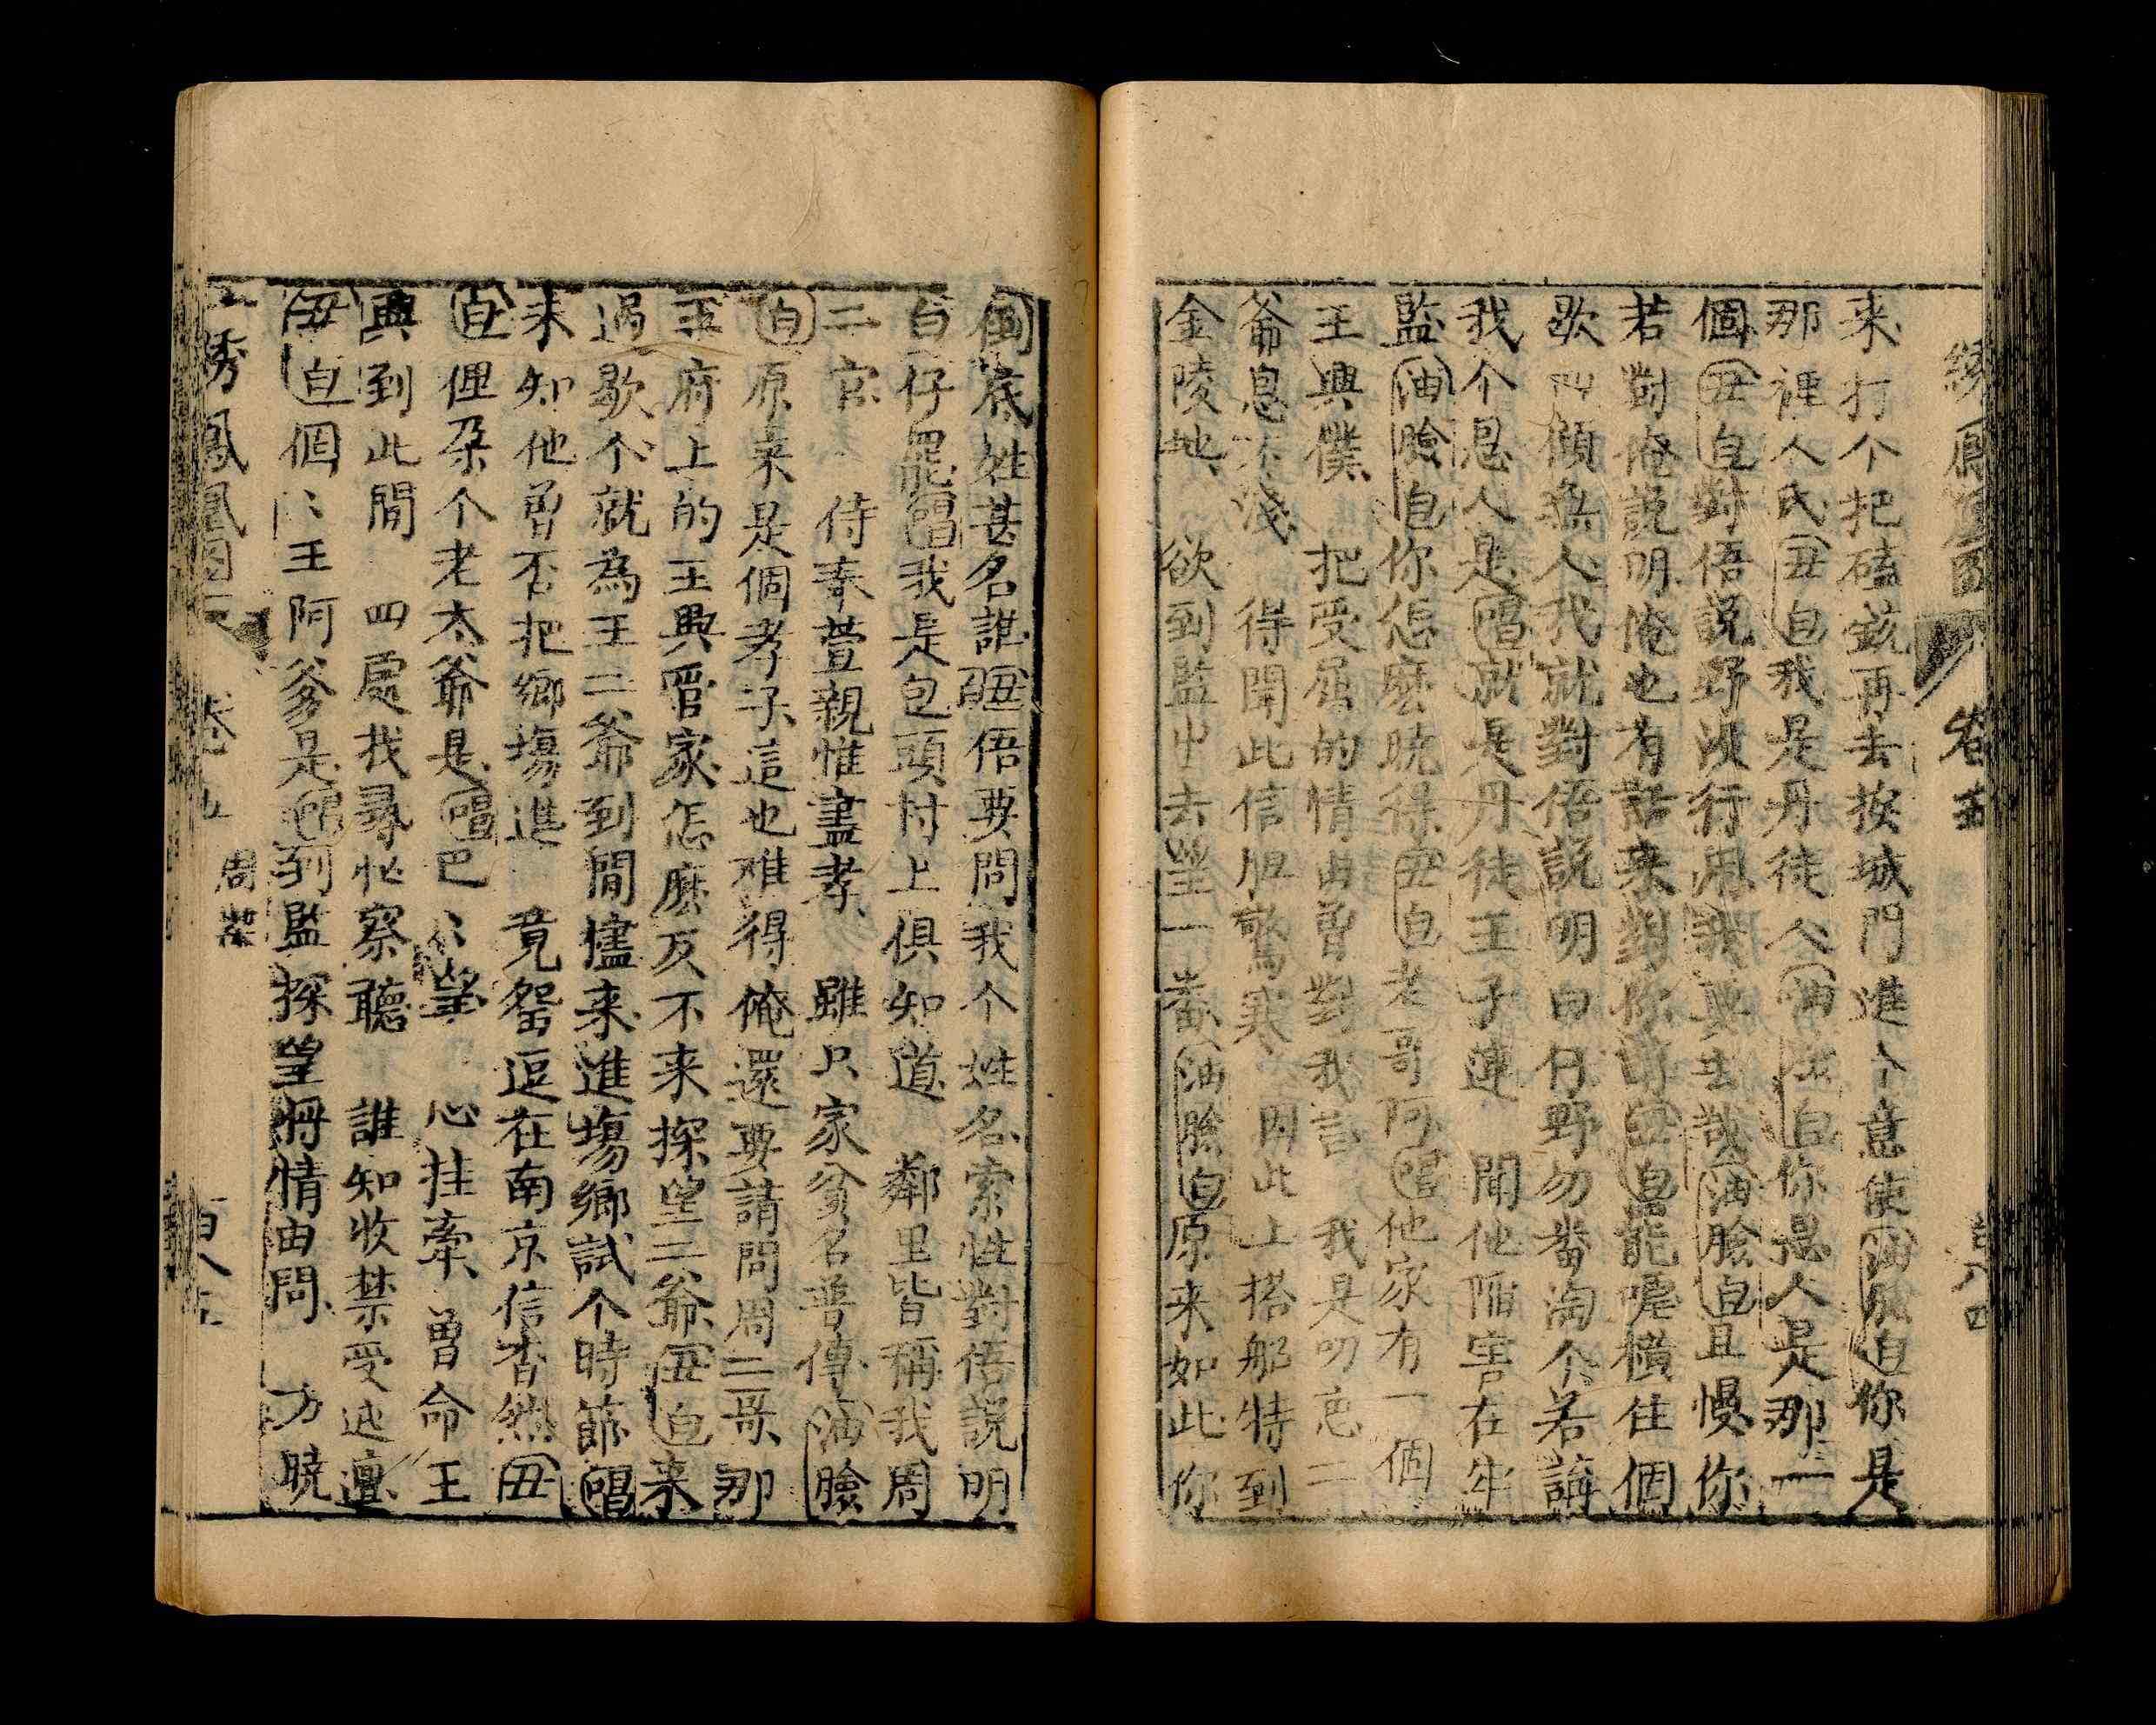 綉鳳凰 卷五 百八四
来打个把磕銃再去挨城門進个意使油臉白你是
那裡人氏丑白我是丹徒人油臉白你恩人是那一
個丑白對俉説野没行用我要去哉油臉白且慢你
若對俺説明俺也有話来對你講丑白罷嗄横住個
歇四顧無人我就對俉説明白仔野勿番淘个若講
我个恩人是唱就是丹徒王子連 聞他陷害在牢
監油臉白你怎麽曉得丑白老哥阿唱他家有一個
王興僕 把受屈的情由曾對我言 我是叨恵二
爺恩不淺 得聞此信胆驚寒 因此上搭船特到
金陵地 欲到監中去望一番油臉白原来如此你
倒底姓甚名誰丑白俉要問我个姓名索性對俉説明
白仔罷唱我是包頭村上俱知道 鄰里皆稱我周
二官 侍奉萱親惟盡孝 雖只家貧名普傳油臉
白原来是個孝子這也难得俺還要請問周二哥那
王府上的王興管家怎麽反不来探望二爺丑白来
過歇个就為王二爺到間壗来進塲鄉試个時節唱
未知他曾否把鄉塲進 竟留逗在南京信杳然丑
白俚朶个老太爺是唱巴巴望 心挂牽 曾命王
興到此間 四處找尋忙察聽 誰知收禁受迍邅
丑白個个王阿爹是唱到監探望將情由問 方曉
綉鳳凰 卷五 周 百八五